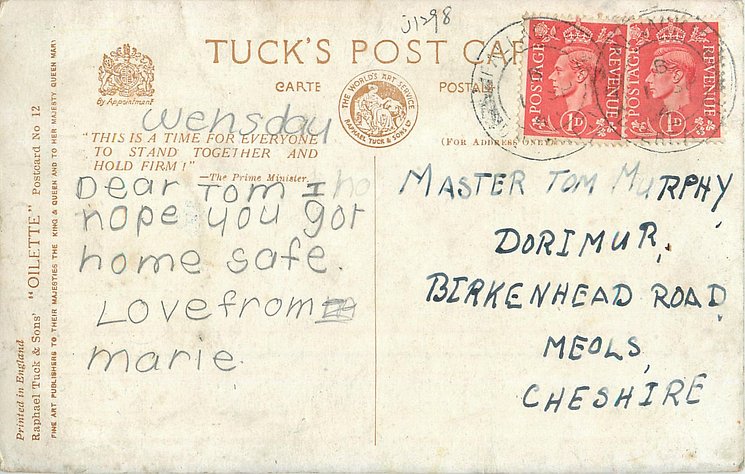 J1298
TUCK'S POST CAR
CARTE POSTAL
By Appointment
THE WORLD'S ART SERVICE
RAPHAEL TUCK & SONS LTD
(FOR ADDRESS ONLY)
POSTAGE REVENUE
1D
POSTAGE REVENUE
1D
"THIS IS A TIME FOR EVERYONE
TO STAND TOGETHER AND
HOLD FIRM!"
—The Prime Minister.
Wensday
Dear Tom I ho
hope you got
home safe.
Love from
marie.
MASTER TOM MURPHY,
DORIMUR,
BIRKENHEAD ROAD
MEOLS,
CHESHIRE
Printed in England
Raphael Tuck & Sons' "OILETTE" Postcard No 12
FINE ART PUBLISHERS TO THEIR MAJESTIES THE KING & QUEEN AND TO HER MAJESTY QUEEN MARY